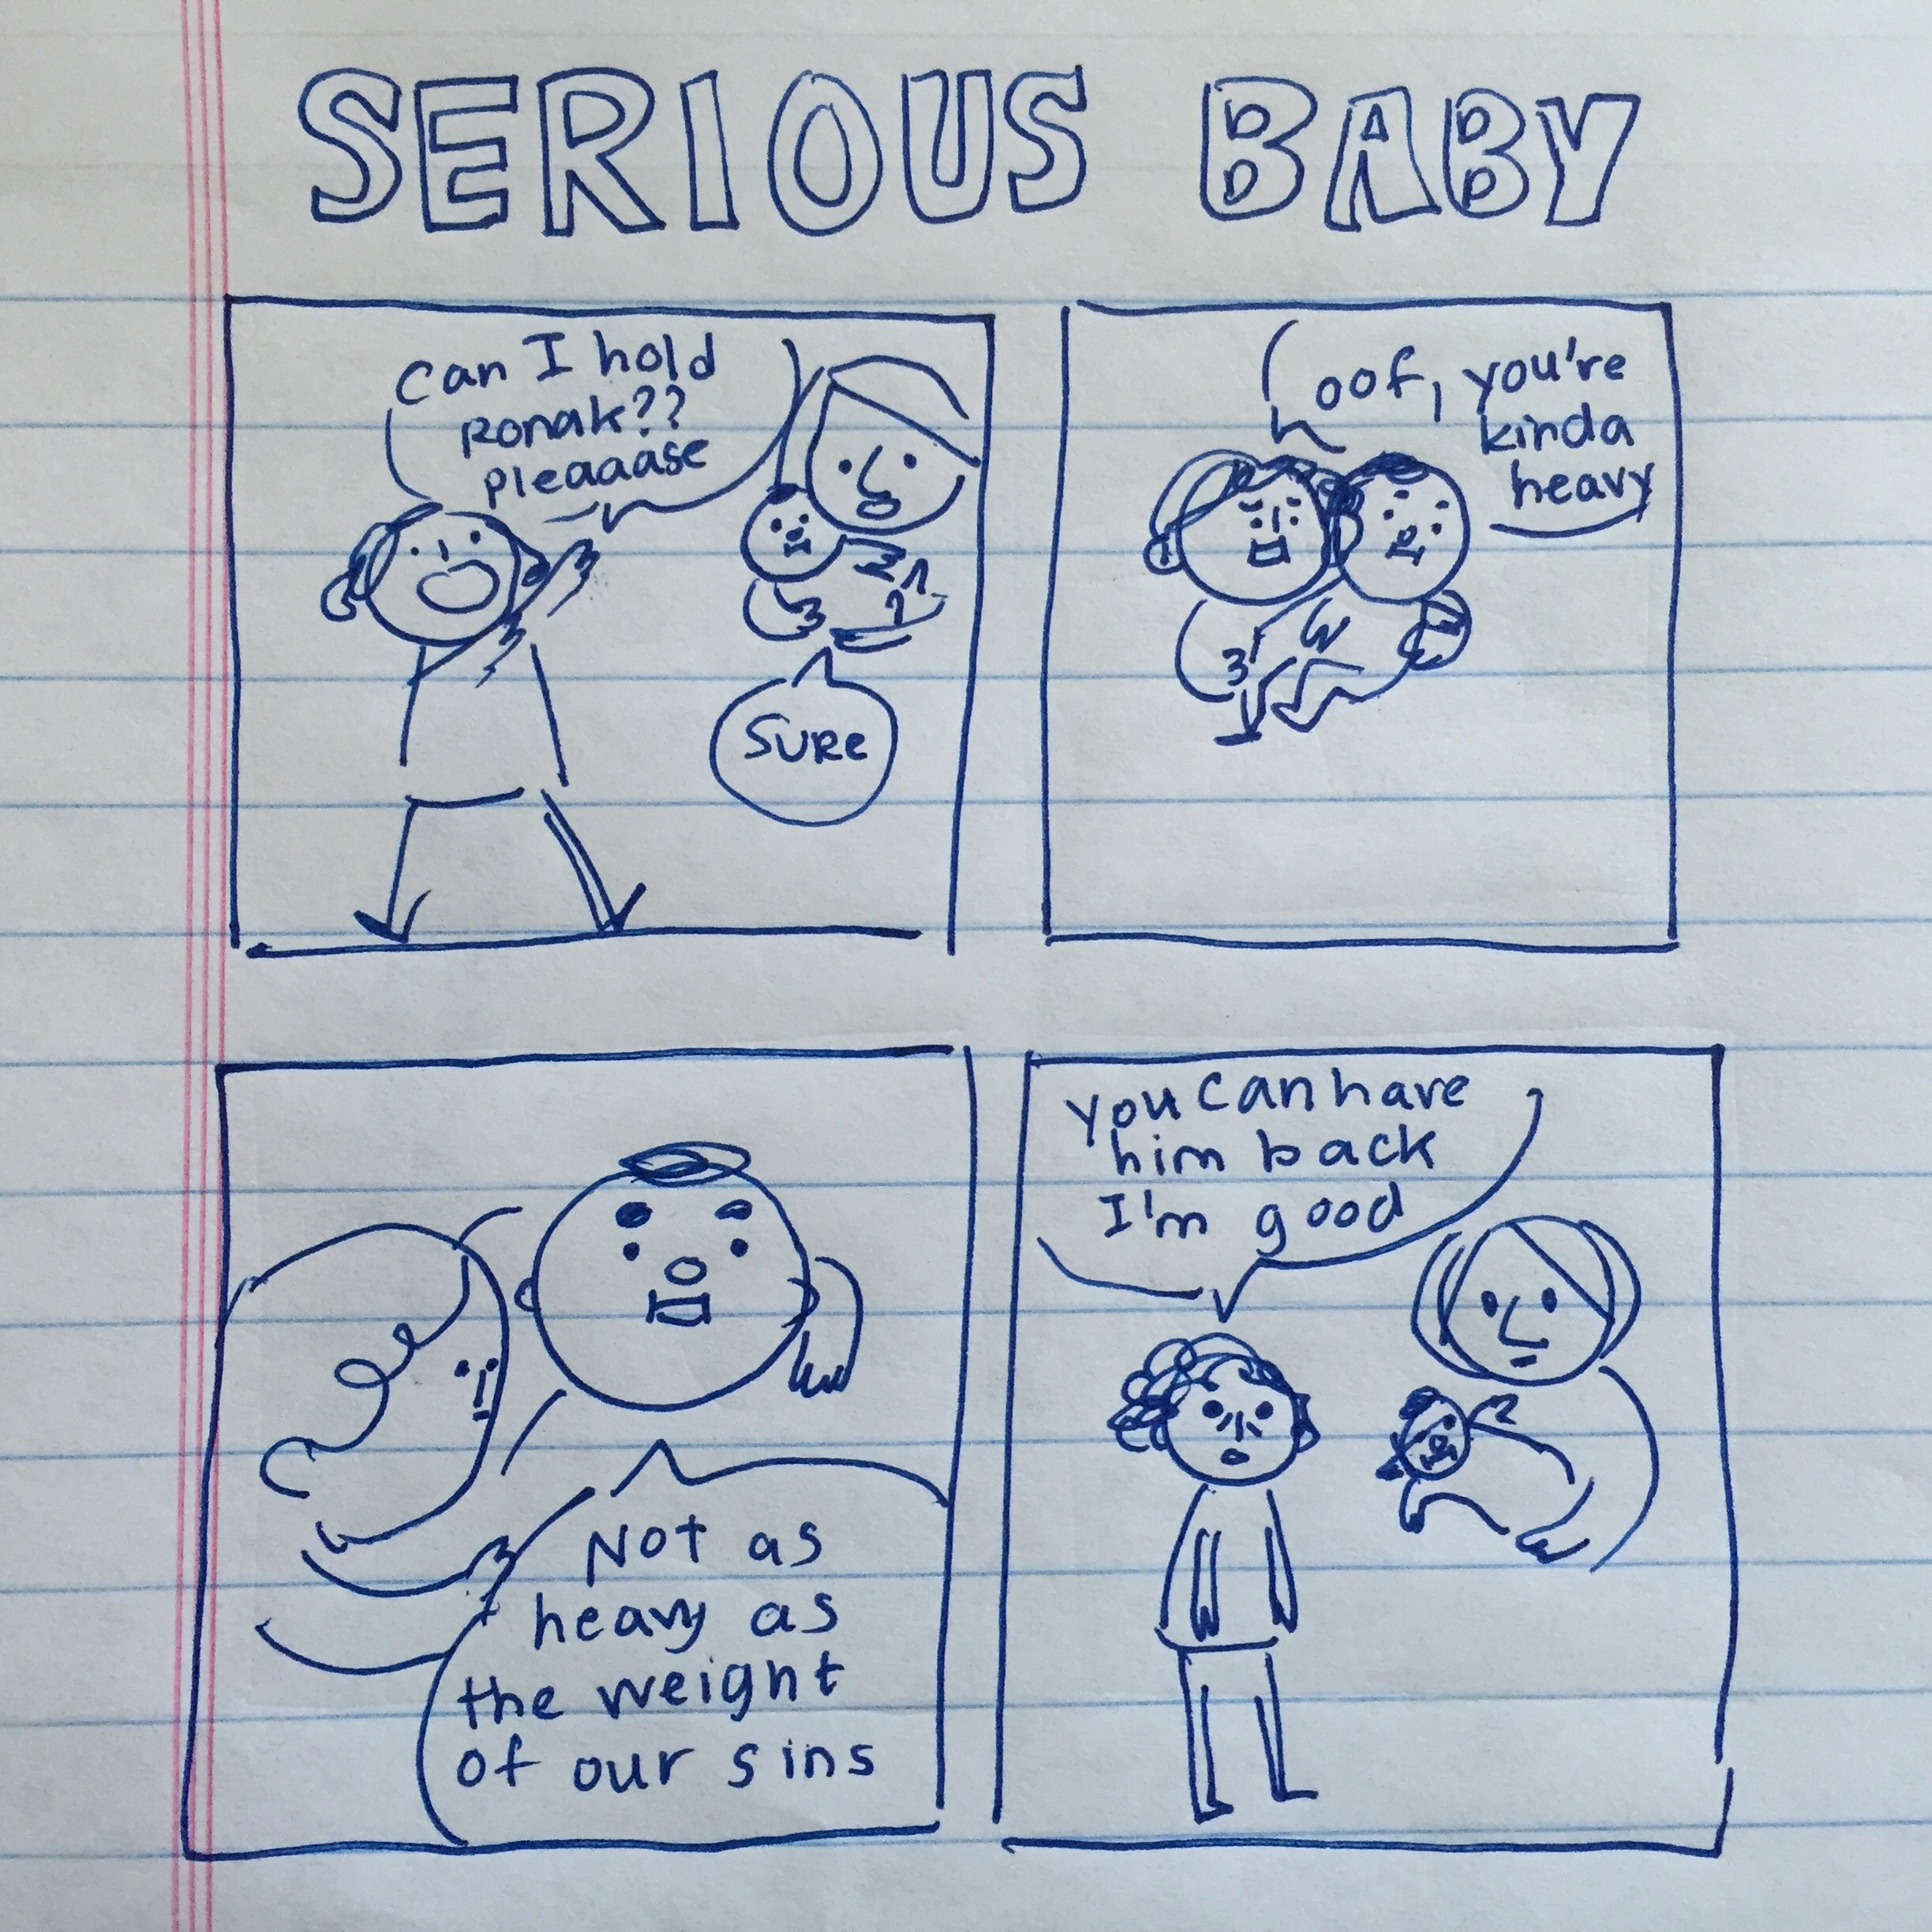 SERIOUS BABY
Can I hold
Ronak??
pleaaase
SURe
oof, you're
kinda
heavy
Not as
heavy as
the weight
of our sins
you can have
him back
I'm good